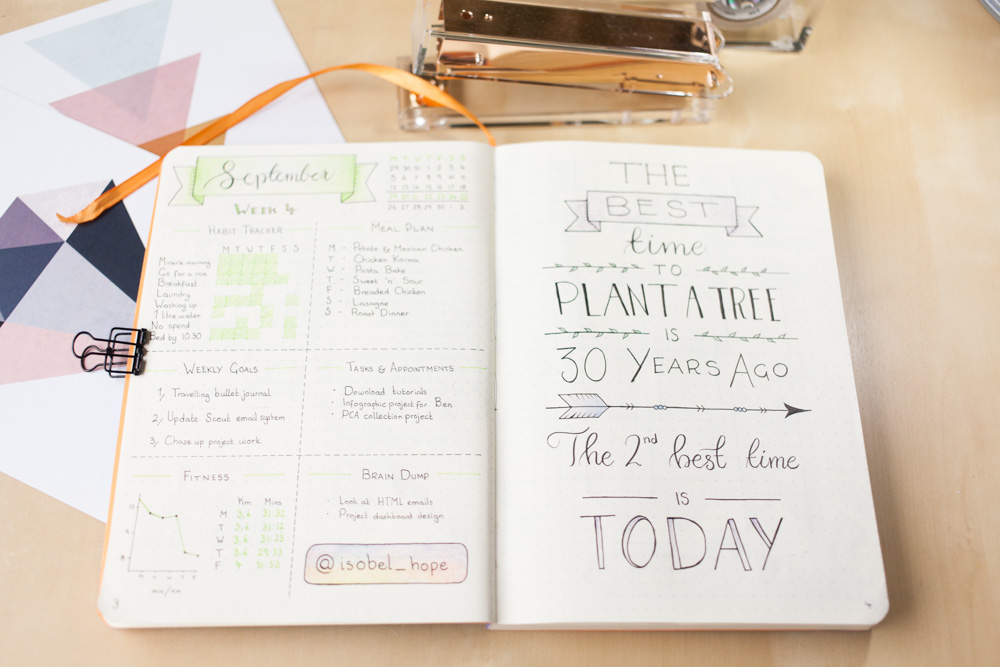 September
WEEK 4
M T W T F S S
29 30 31 1 2 3 4
5 6 7 8 9 10 11
12 13 14 15 16 17 18
19 20 21 22 23 24 25
26 27 28 29 30 1 2
HABIT TRACKER
M T W T F S S
Miracle morning
Go for a run
Breakfast
Laundry
Washing up
1 litre water
No spend
Bed by 10:30
MEAL PLAN
M - Potato & Mexican Chicken
T - Chicken Korma
W - Pasta Bake
T - Sweet 'n' Sour
F - Breaded Chicken
S - Lasagne
S - Roast Dinner
WEEKLY GOALS
1, Travelling bullet journal
2, Update Scout email system
3, Chase up project work
TASKS & APPOINTMENTS
• Download tutorials
• Infographic project for Ben
• PCA collection project
FITNESS
Km Mins
M 3.6
T 3.6
W 3.6
T 3.6
F 4
min/km
BRAIN DUMP
• Look at HTML emails
• Project dashboard design
@isobel_hope
3
THE
BEST
time
TO
PLANT A TREE
IS
30 YEARS AGO
The 2nd best time
IS
TODAY
4